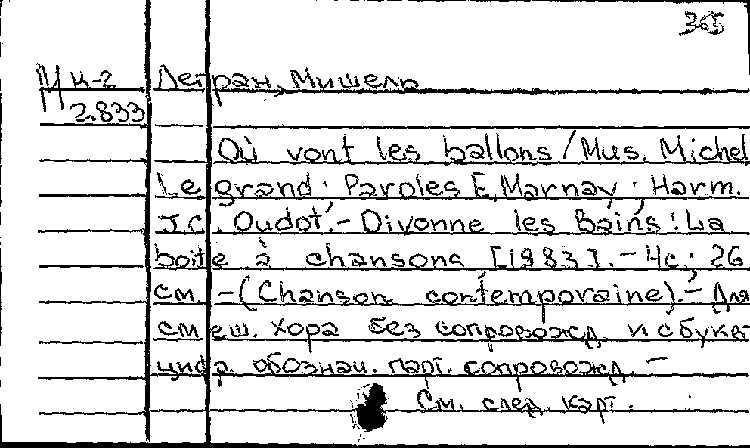 365
М н-2 Легран, Мишель
2.833
Où vont les ballons / Mus. Michel
Legrand ; Paroles E. Marnay ; Harm.
J.C. Oudot. – Divonne les Bains : La
boite à chansons [1983]. – 4с ; 26
см. – (Chanson contemporaine). – Для
смеш. хора без сопровожд. и с букв.
цифр. обознач. парт. сопровожд. –
См. след. карт.